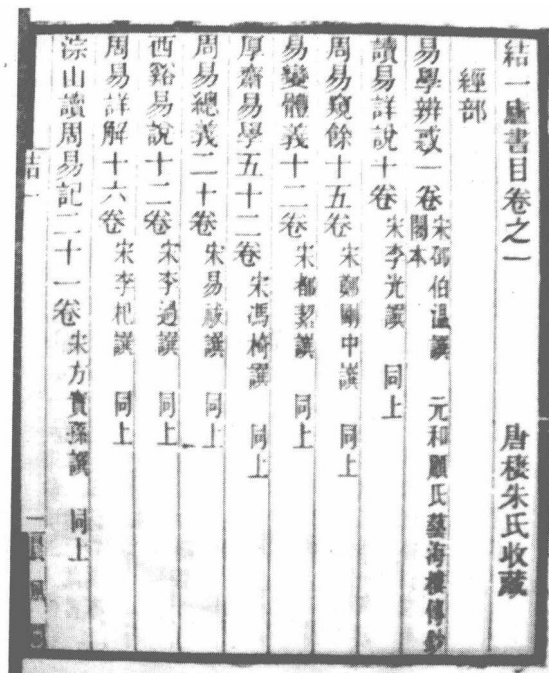 結一廬書目卷之一 唐棲朱氏收藏
經部
易學辨惑一卷 宋邵伯溫譔 元和顧氏藝海樓傳鈔
閣本
讀易詳說十卷 宋李光譔 同上
周易窺餘十五卷 宋鄭剛中譔 同上
易變體義十二卷 宋都絜譔 同上
厚齋易學五十二卷 宋馮椅譔 同上
周易總義二十卷 宋易祓譔 同上
西谿易說十二卷 宋李過譔 同上
周易詳解十六卷 宋李杞譔 同上
淙山讀周易記二十一卷 宋方實孫譔 同上
結一 一 晨風